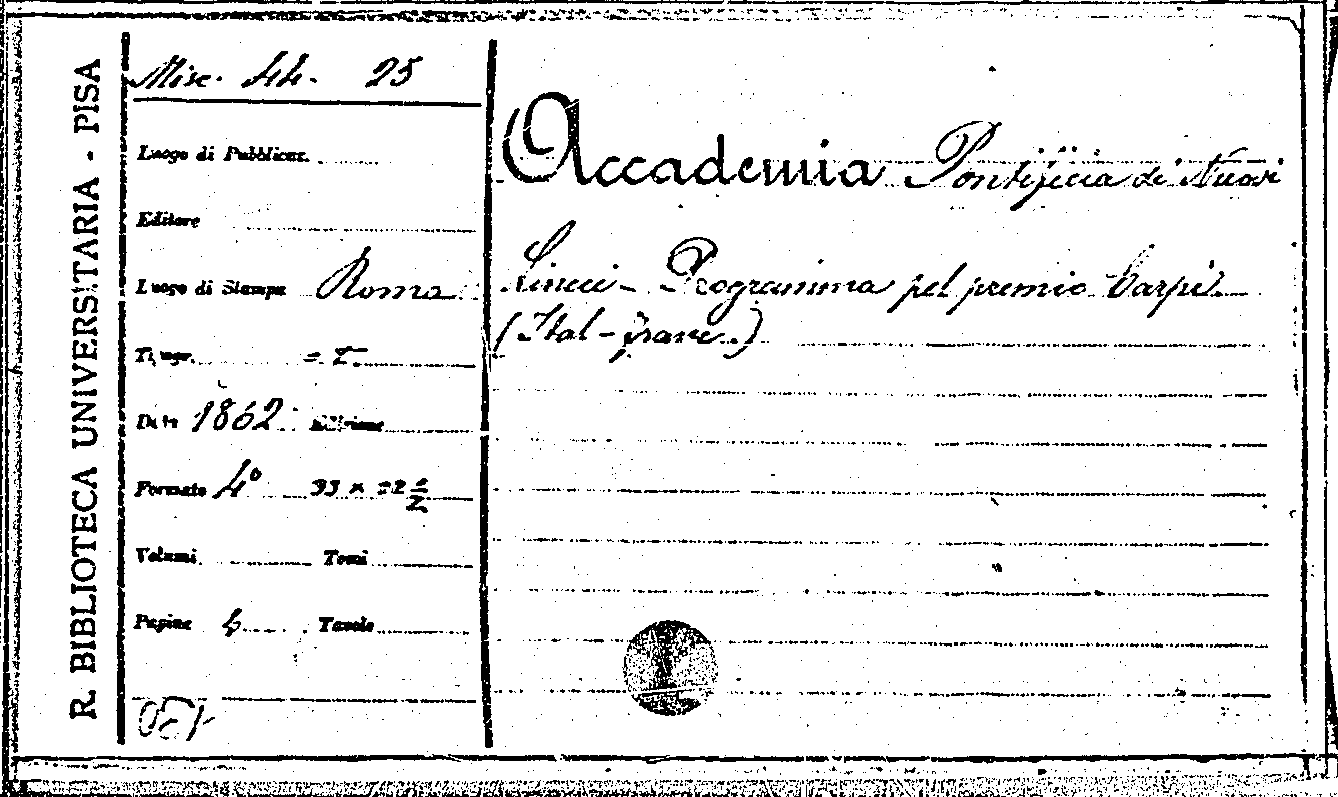 R. BIBLIOTECA UNIVERSITARIA - PISA
Misc. 44. 25
Luogo di Pubblicaz.
Editore
Luogo di Stampa Roma
Tipogr.
Data 1862 Edizione
Formato 4°
Volumi Tomi
Pagine 4 Tavole
Accademia Pontificia di Nuovi
Lincei - Programma pel premio Carpi.
(Ital - franc.)